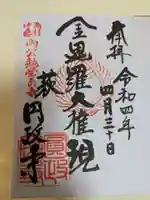 奉拝
令和四年
四月三十日
金毘羅大権現
萩
円政寺